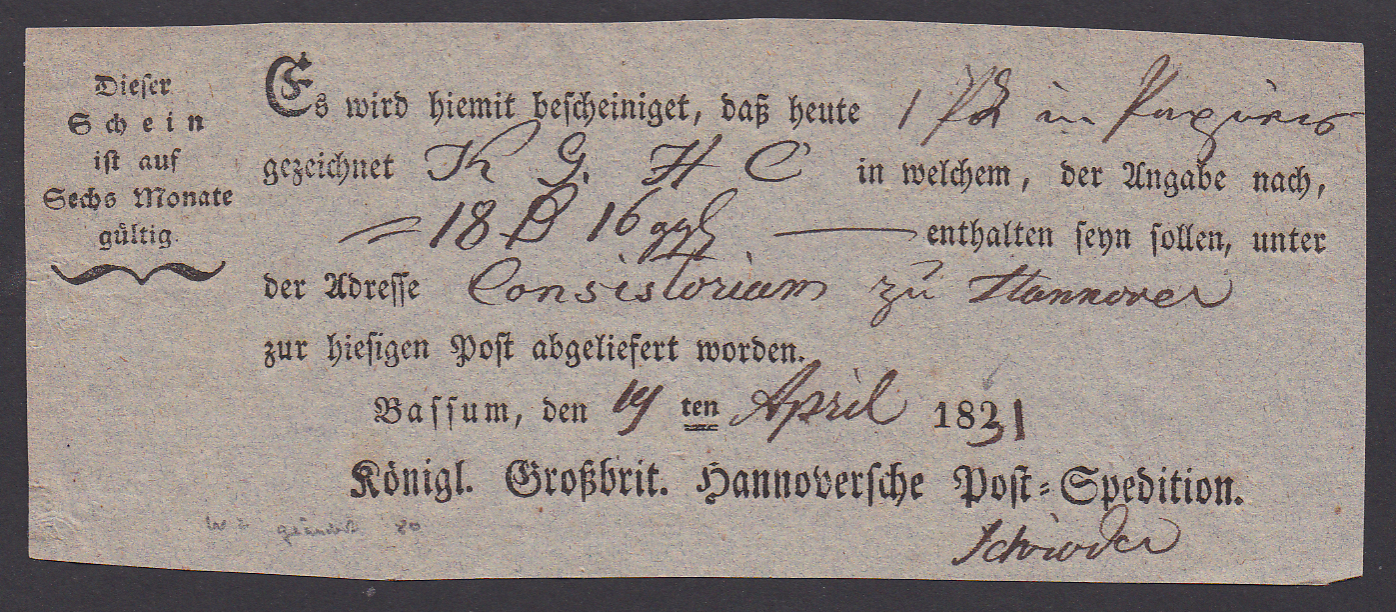 Dieser
Schein
ist auf
Sechs Monate
gültig
Es wird hiemit bescheiniget, daß heute 1 in
gezeichnet K G. H C in welchem, der Angabe nach,
= 18 16 ggl — enthalten seyn sollen, unter
der Adresse Consistorium zu Hannover
zur hiesigen Post abgeliefert worden.
Bassum, den 19 ten April 1831
Königl. Großbrit. Hannoversche Post-Spedition.
Schröder